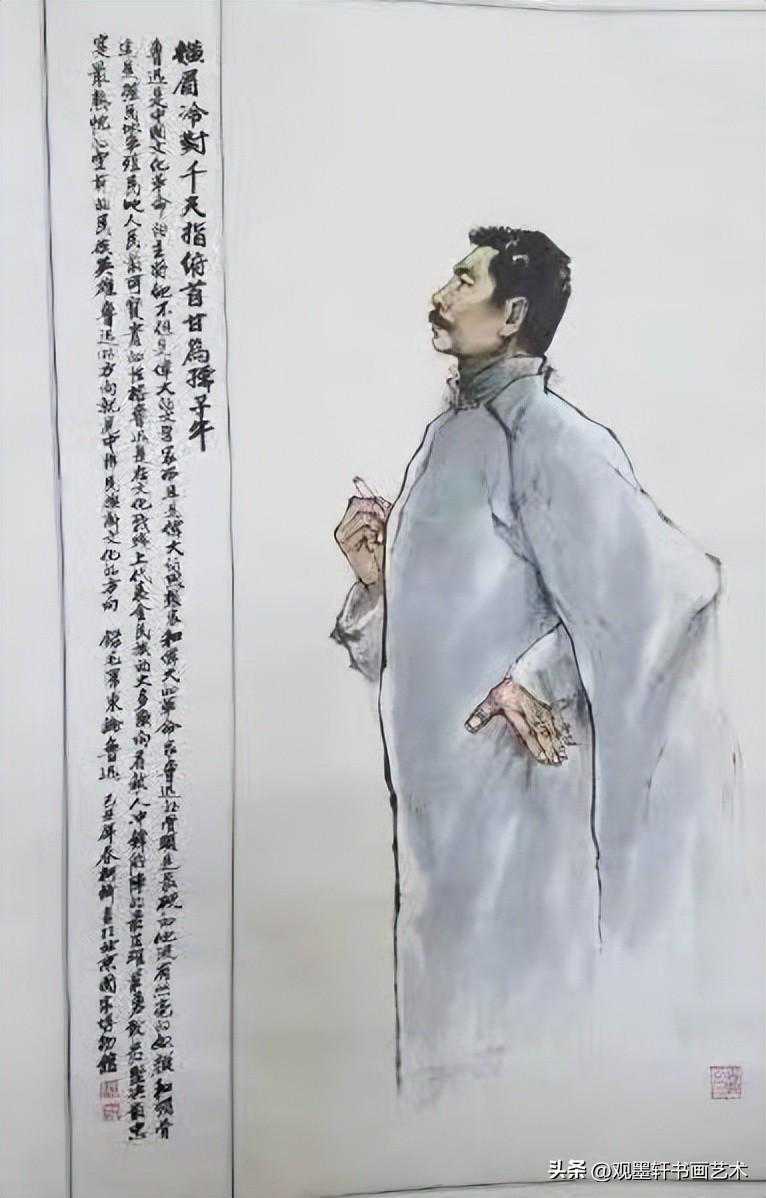 橫眉冷對千夫指俯首甘為孺子牛
鲁迅是中國文化革命的主將他不但是偉大的文学家而且是偉大的思想家和偉大的革命家鲁迅的骨頭是最硬的他没有丝毫的奴颜和媚骨
這是殖民地半殖民地人民最可寶貴的性格鲁迅是在文化战線上代表全民族的大多数向着敵人冲鋒陷陣的最正確最勇敢最堅決最忠
实最热忱的空前的民族英雄鲁迅的方向就是中華民族新文化的方向 錄毛澤東論鲁迅 己丑年春 書於北京國家博物館
头条 @观墨轩书画艺术